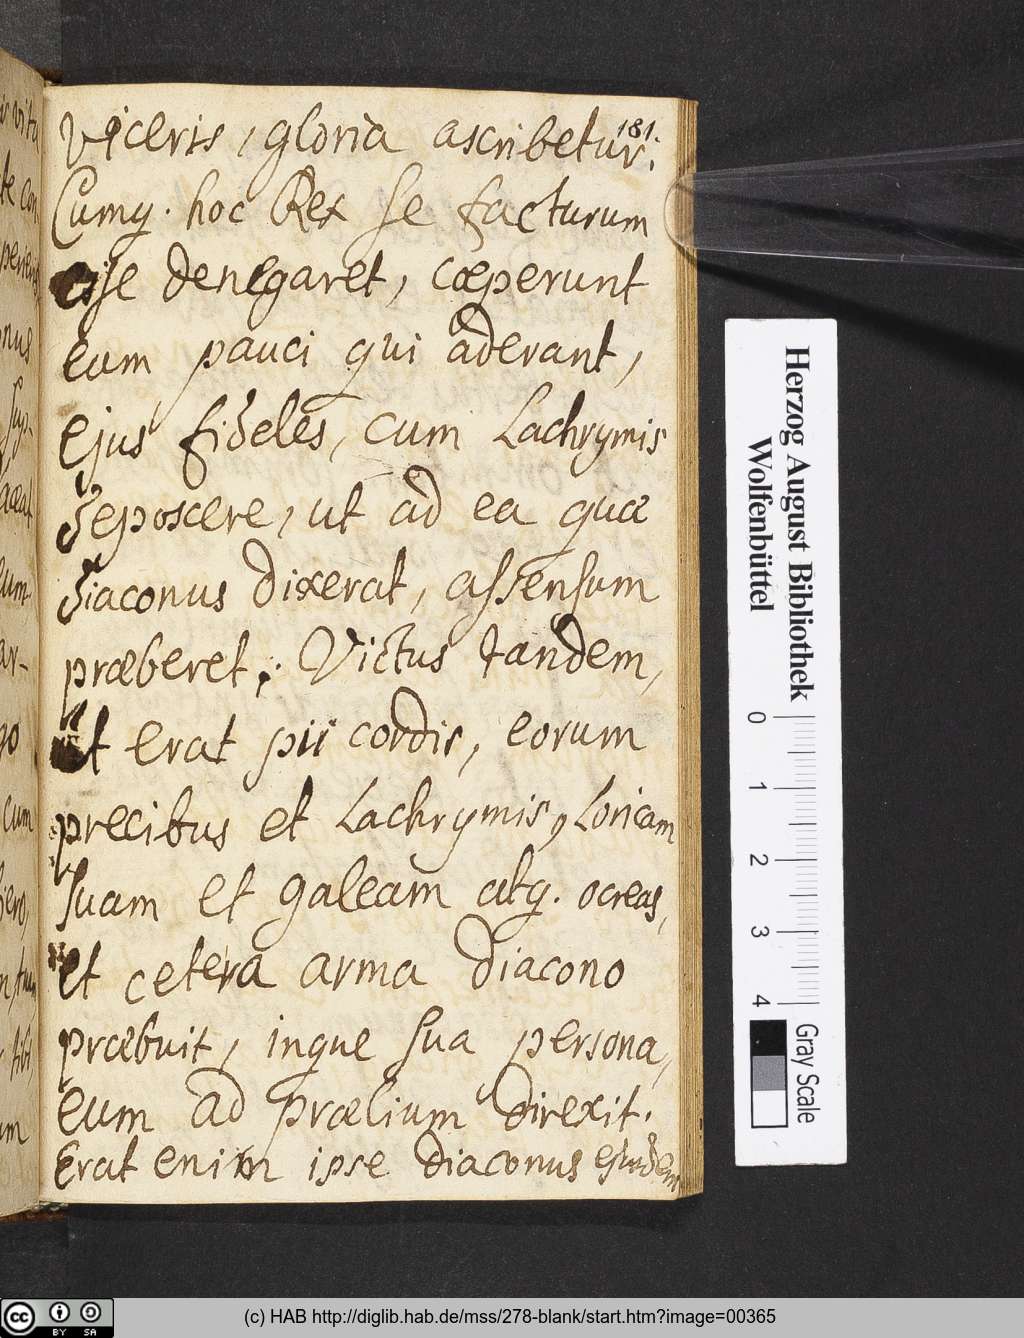 181.
viceris, gloria ascribetur.
Cumq. hoc Rex se facturum
esse denegaret, cæperunt
eum pauci qui aderant,
ejus fideles, cum Lachrymis
deposcere, ut ad ea quæ
diaconus dixerat, assensum
præberet; Victus tandem,
ut erat pii cordis, eorum
precibus et Lachrymis, Loricam
suam et galeam atq. ocreas,
et cetera arma diacono
præbuit, inque sua persona,
eum ad prælium direxit.
Erat enim ipse diaconus ejusdem
Herzog August Bibliothek
Wolfenbüttel
0 1 2 3 4
Gray Scale
(c) HAB http://diglib.hab.de/mss/278-blank/start.htm?image=00365
cc BY SA